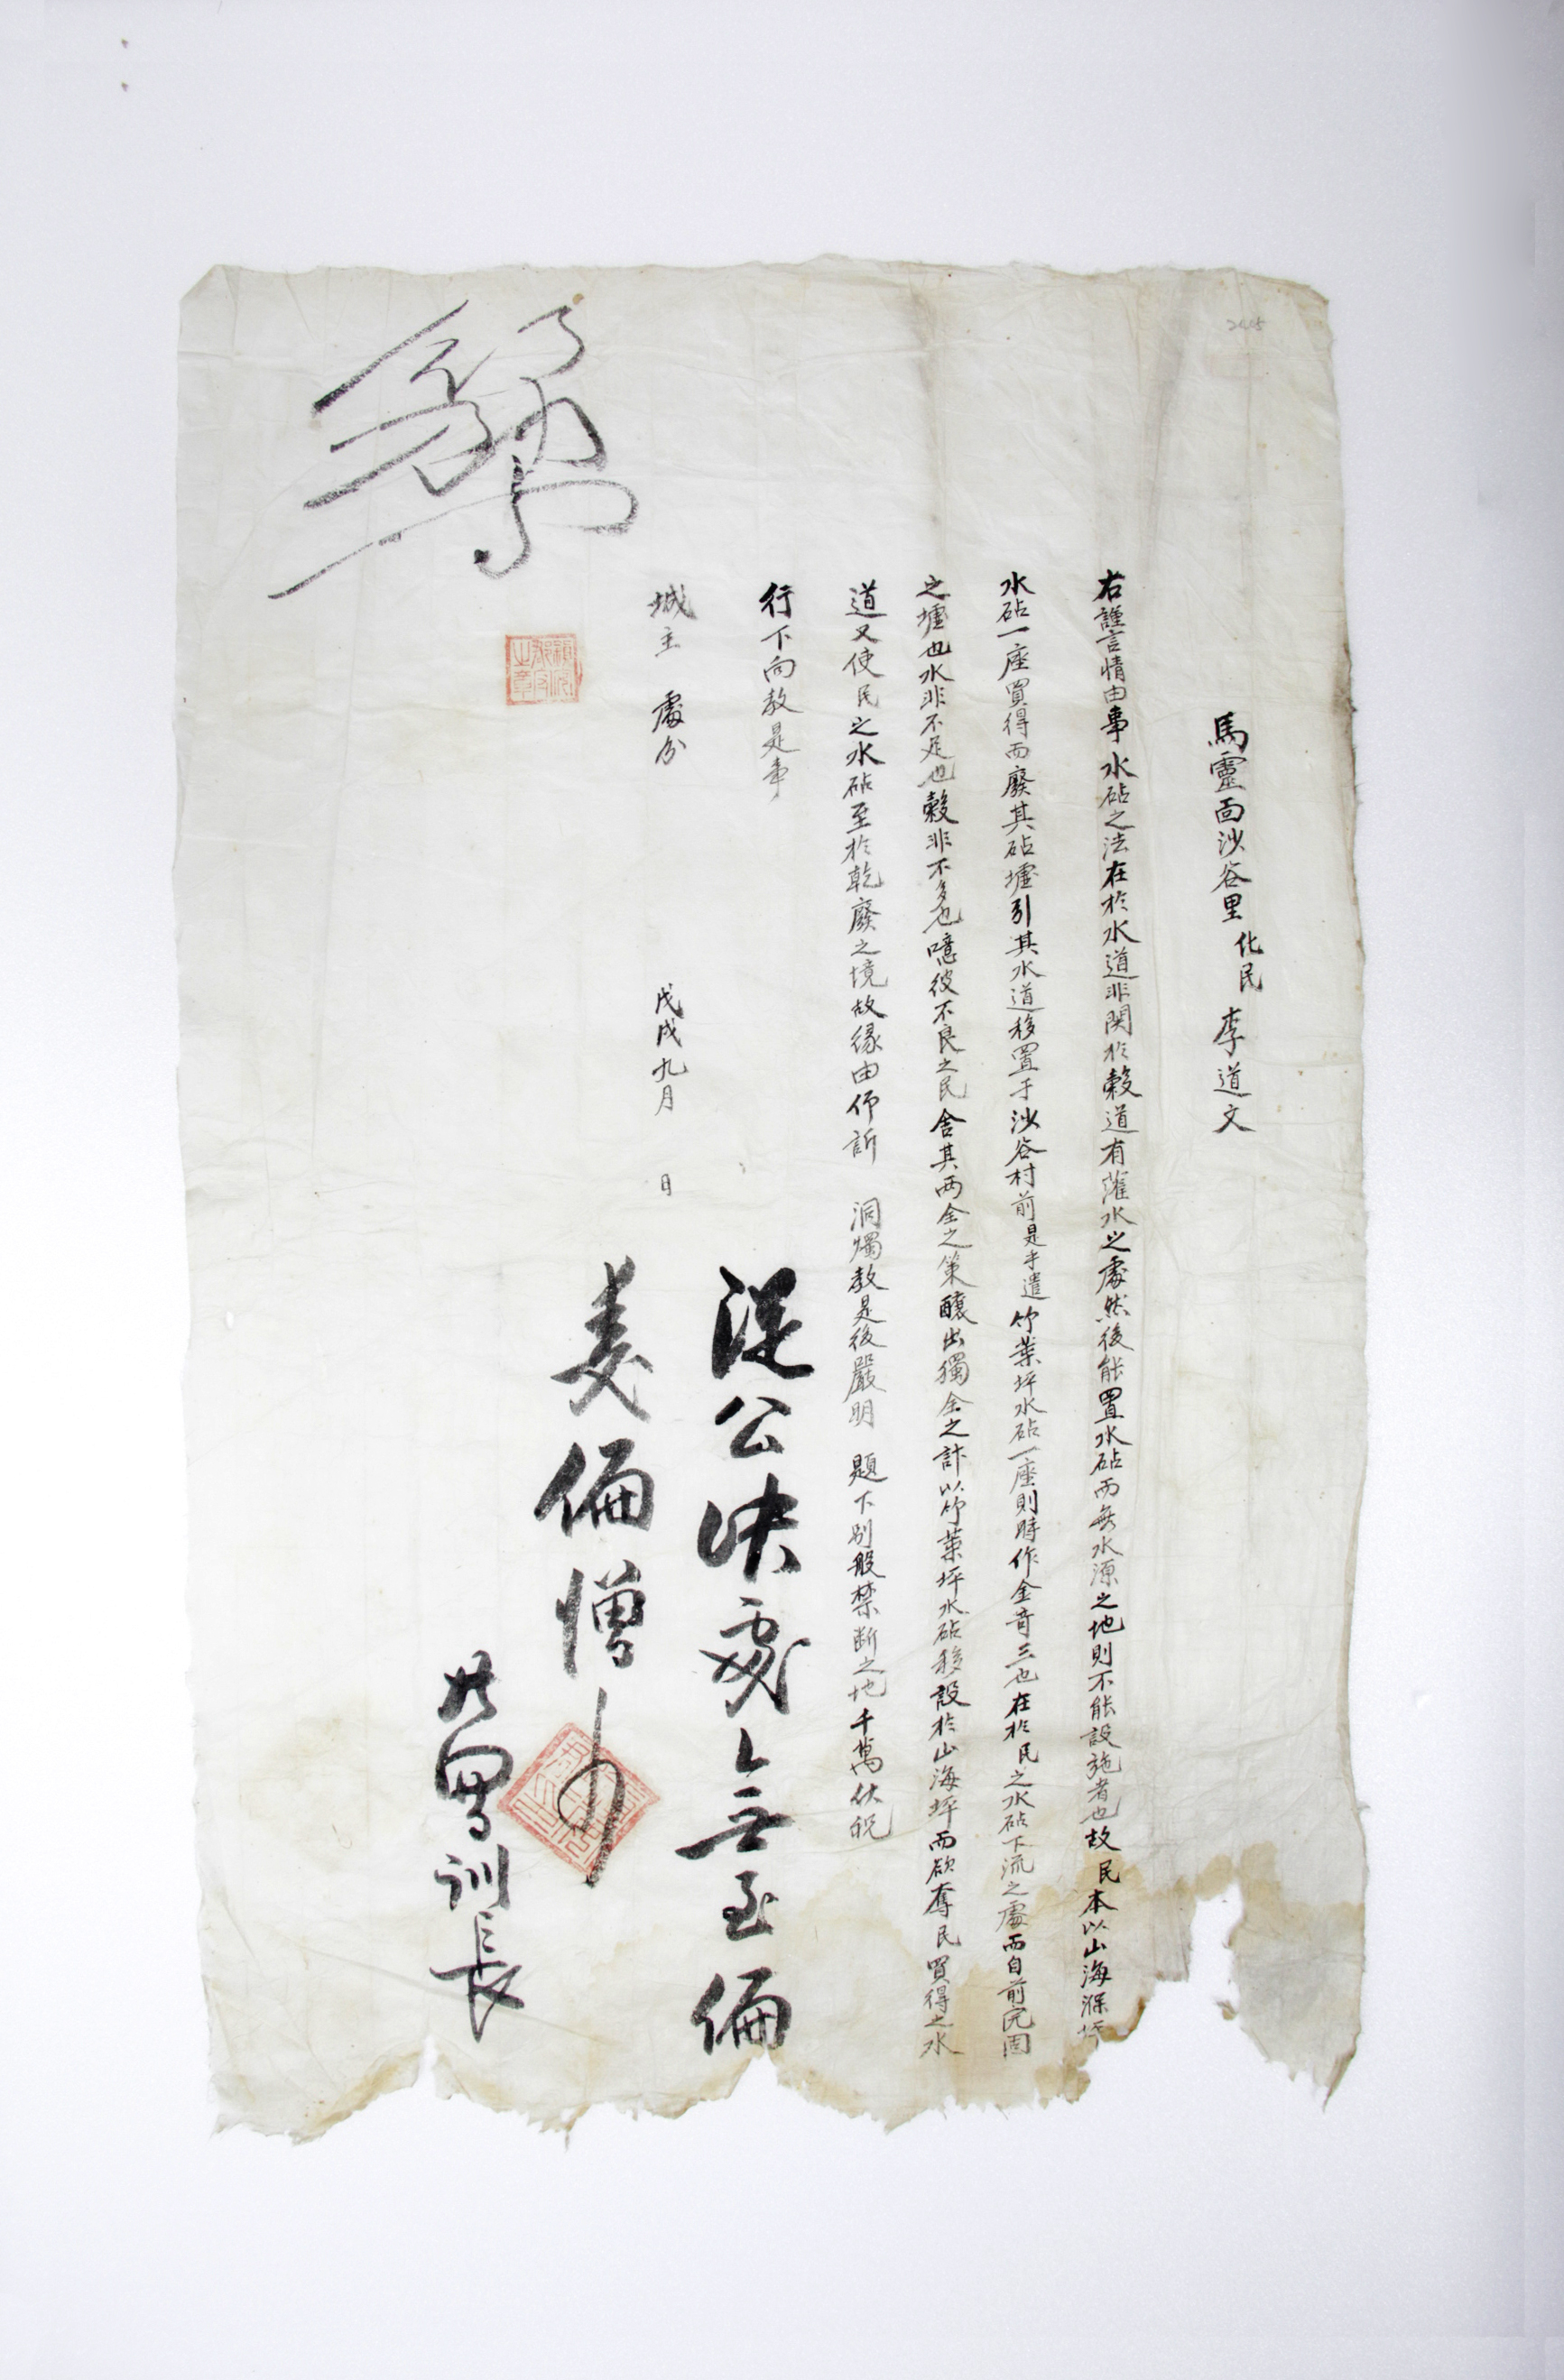 馬靈面沙谷里化民李道文
右謹言情由事水砧之法在於水道非関於穀道有灌水之處然後能置水砧而無水源之地則不能設施者也故民本以山海㴍坪
水砧一座買得而廢其砧墟引其水道移置于沙谷村前是乎遣竹葉坪水砧一座則時作金奇三也在於民之水砧下流之處而自前完固
之墟也水非不足也穀非不多也噫彼不良之民舍其兩全之策釀出獨全之計以竹葉坪水砧移設於山海坪而欲奪民買得之水
道又使民之水砧至於乾廢之境故緣由仰訴 洞燭敎是後嚴明 題下別般禁断之地千萬伏祝
行下向敎是事
城主 處分
戊戌九月 日
從公決處無至偏
愛偏憎
訓長
2445